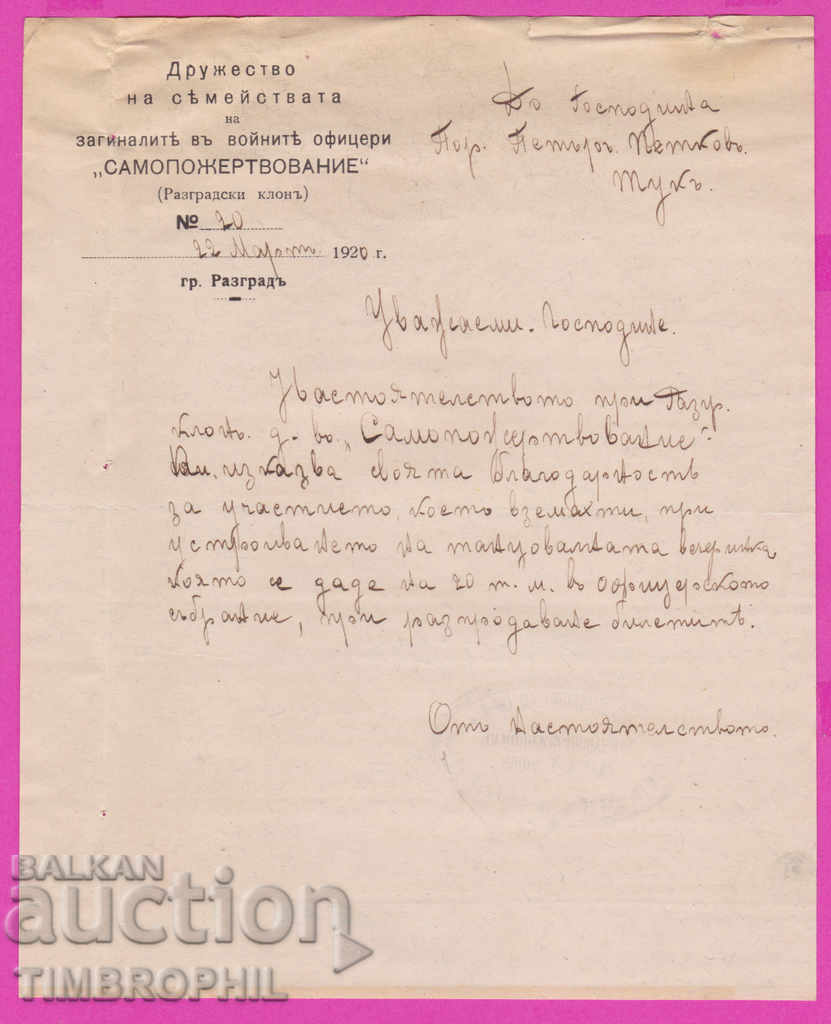 Дружество
на сѣмействата
на
загиналитѣ въ войнитѣ офицери
„САМОПОЖЕРТВОВАНИЕ“
(Разградски клонъ)
№ 20
22 Мартъ 1920 г.
гр. Разградъ
До Господина
Пор. Петъръ Петковъ.
Тукъ.
Уважаеми Господине.
Настоятелството при Разгр.
клонъ д-во „Самопожертвование“
Ви изказва своята благодарность
за участието, което вземахти, при
устройването на танцовалната вечеринка
която се даде на 20 т. м. въ офицерското
събрание, при разпродаване билетитѣ.
Отъ Настоятелството.
BALKAN
auction
TIMBROPHIL